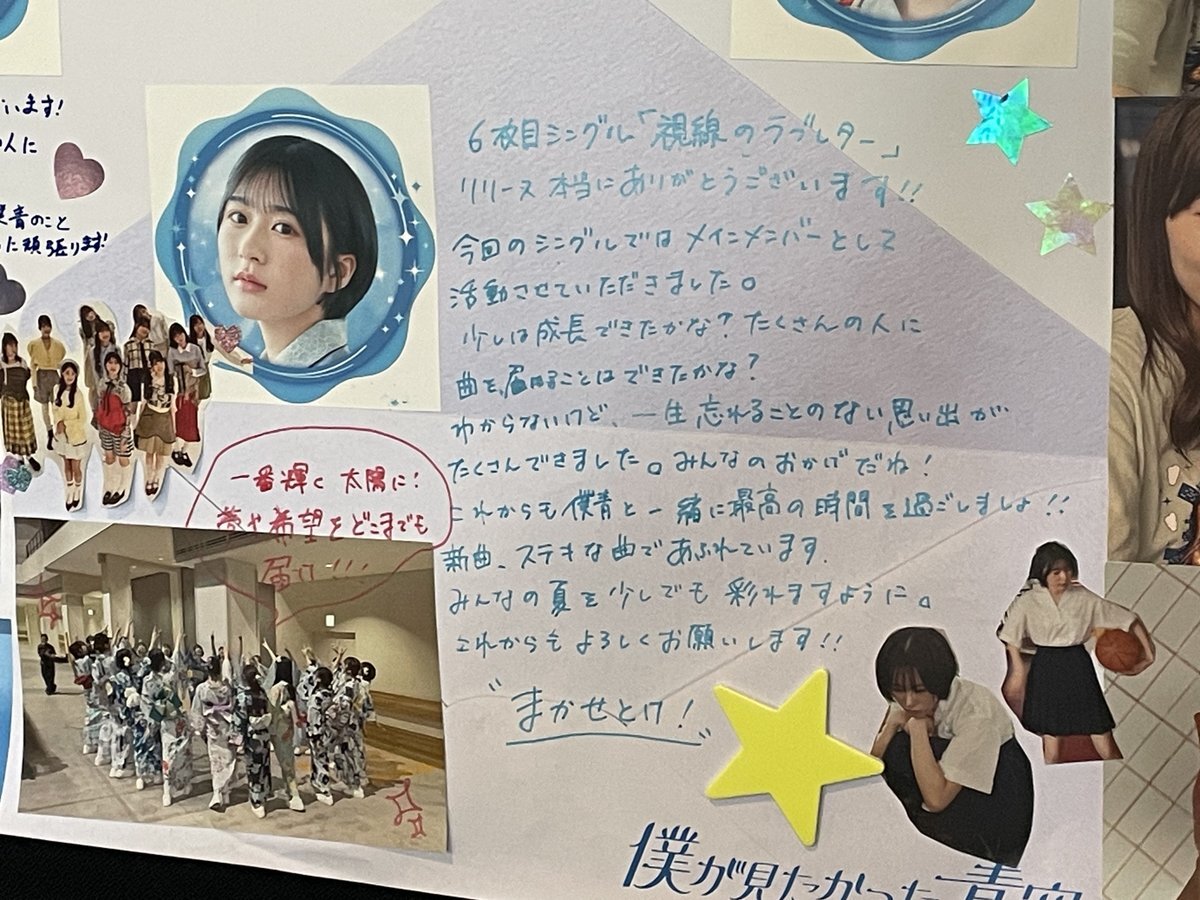 います!
人に
青のこと
頑張ります!
6枚目シングル「視線のラブレター」
リリース本当にありがとうございます!!
今回のシングルではメインメンバーとして
活動させていただきました。
少しは成長できたかな?たくさんの人に
曲を、届けることはできたかな?
わからないけど、一生忘れることのない思い出が
たくさんできました。みんなのおかげだね!
これからも僕青と一緒に最高の時間を過ごしましょ!!
新曲、ステキな曲であふれています.
みんなの夏を少しでも彩れますように。
これからもよろしくお願いします!!
"まかせとけ!"
一番輝く太陽に!
夢や希望をどこまでも
届け!!!
僕が見たかった青空